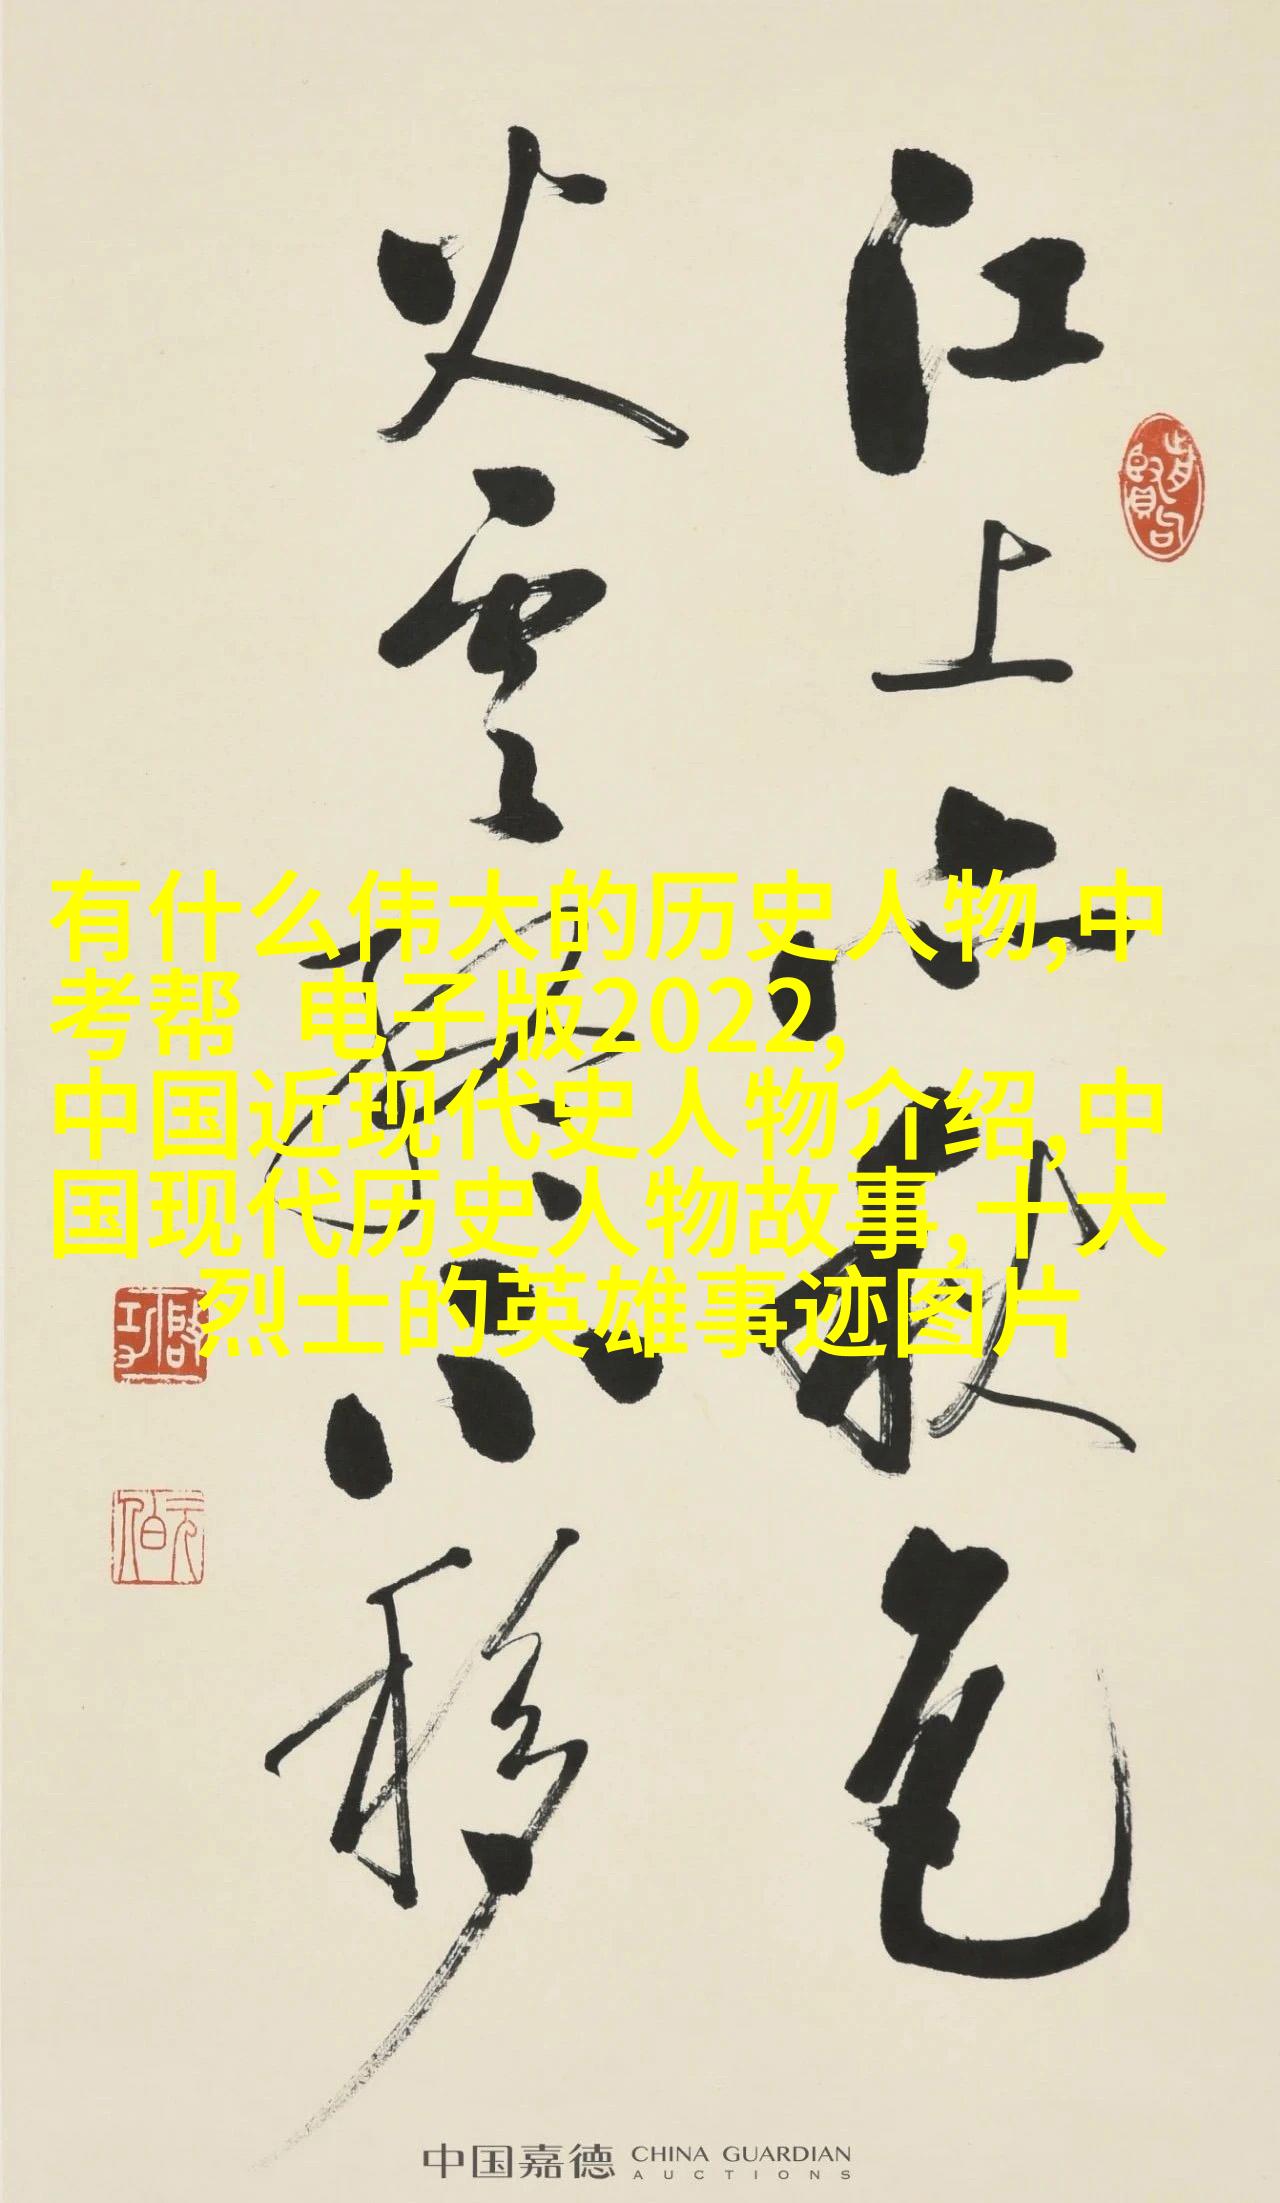 江上亦秋色
火雲終不移
啟功
元伯
有什么伟大的历史人物,中
考帮 电子版2022,
中国近现代史人物介绍,中
国现代历史人物故事,十大
烈士的英雄事迹图片
中国嘉德 CHINA GUARDIAN
AUCTIONS